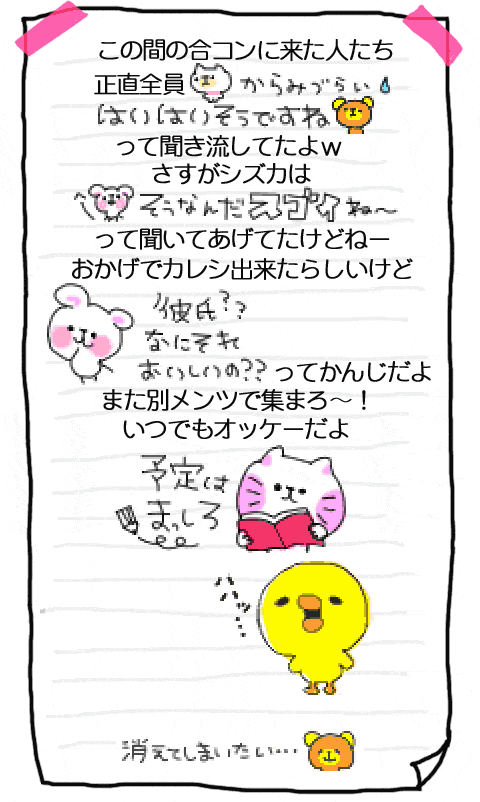 この間の合コンに来た人たち
正直全員 からみづらい
はいはいそうですね
って聞き流してたよｗ
さすがシズカは
そうなんだスゴイね～
って聞いてあげてたけどねー
おかげでカレシ出来たらしいけど
彼氏??
なにそれ
おいしいの??ってかんじだよ
また別メンツで集まろ～！
いつでもオッケーだよ
予定は
まっしろ
ハハッ…
消えてしまいたい…